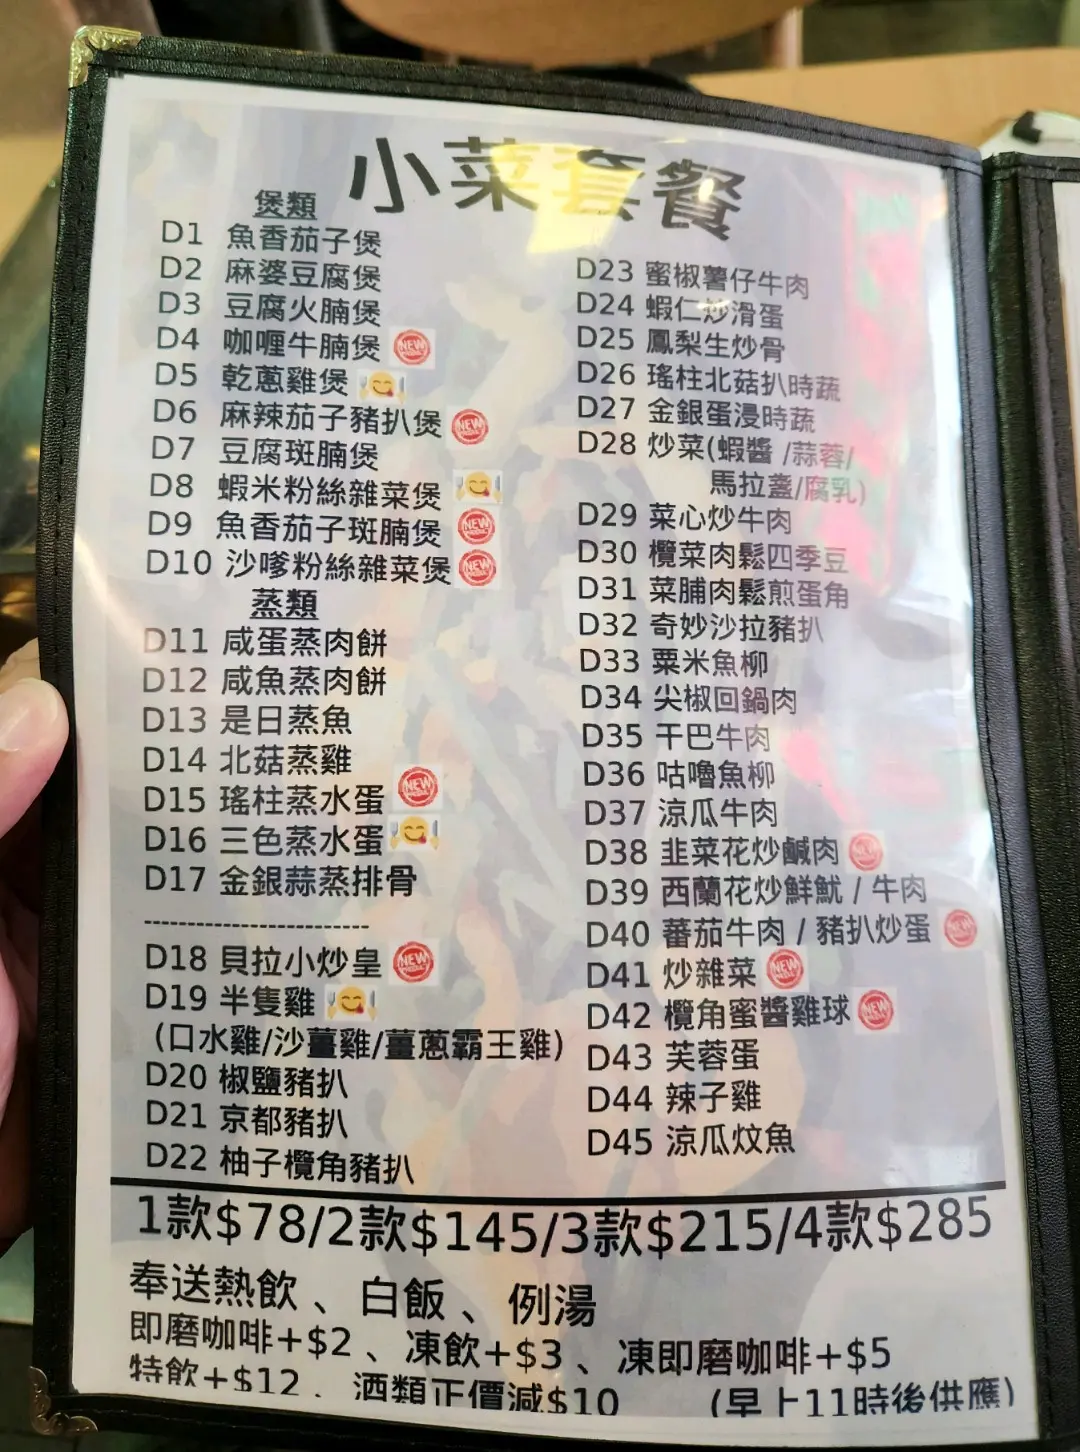 小菜套餐
煲類
D1 魚香茄子煲
D2 麻婆豆腐煲
D3 豆腐火腩煲
D4 咖喱牛腩煲 NEW PRODUCT
D5 乾蔥雞煲
D6 麻辣茄子豬扒煲 NEW PRODUCT
D7 豆腐斑腩煲
D8 蝦米粉絲雜菜煲
D9 魚香茄子斑腩煲 NEW PRODUCT
D10 沙嗲粉絲雜菜煲 NEW PRODUCT
蒸類
D11 咸蛋蒸肉餅
D12 咸魚蒸肉餅
D13 是日蒸魚
D14 北菇蒸雞
D15 瑤柱蒸水蛋 NEW PRODUCT
D16 三色蒸水蛋
D17 金銀蒜蒸排骨
---------------------------
D18 貝拉小炒皇 NEW PRODUCT
D19 半隻雞
(口水雞/沙薑雞/薑蔥霸王雞)
D20 椒鹽豬扒
D21 京都豬扒
D22 柚子欖角豬扒
D23 蜜椒薯仔牛肉
D24 蝦仁炒滑蛋
D25 鳳梨生炒骨
D26 瑤柱北菇扒時蔬
D27 金銀蛋浸時蔬
D28 炒菜(蝦醬 /蒜蓉/
馬拉盞/腐乳)
D29 菜心炒牛肉
D30 欖菜肉鬆四季豆
D31 菜脯肉鬆煎蛋角
D32 奇妙沙拉豬扒
D33 粟米魚柳
D34 尖椒回鍋肉
D35 干巴牛肉
D36 咕嚕魚柳
D37 涼瓜牛肉
D38 韭菜花炒鹹肉 NEW PRODUCT
D39 西蘭花炒鮮魷 / 牛肉
D40 蕃茄牛肉 / 豬扒炒蛋 NEW PRODUCT
D41 炒雜菜 NEW PRODUCT
D42 欖角蜜醬雞球 NEW PRODUCT
D43 芙蓉蛋
D44 辣子雞
D45 涼瓜炆魚
1款$78/2款$145/3款$215/4款$285
奉送熱飲、白飯、例湯
即磨咖啡+$2、凍飲+$3、凍即磨咖啡+$5
特飲+$12、酒類正價減$10 (早上11時後供應)